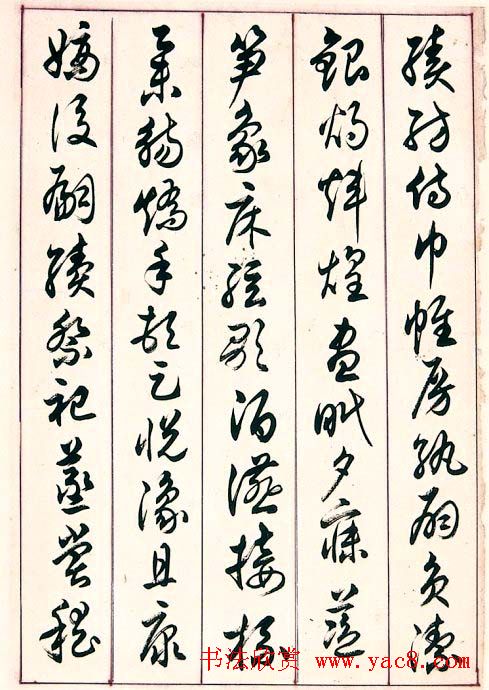 績紡侍巾帷房紈扇員潔
銀燭煒煌晝眠夕寐藍
笋象床弦歌酒讌接杯
舉觴矯手頓足悅豫且康
嫡後嗣續祭祀蒸嘗稽
书法欣赏 www.yac8.com